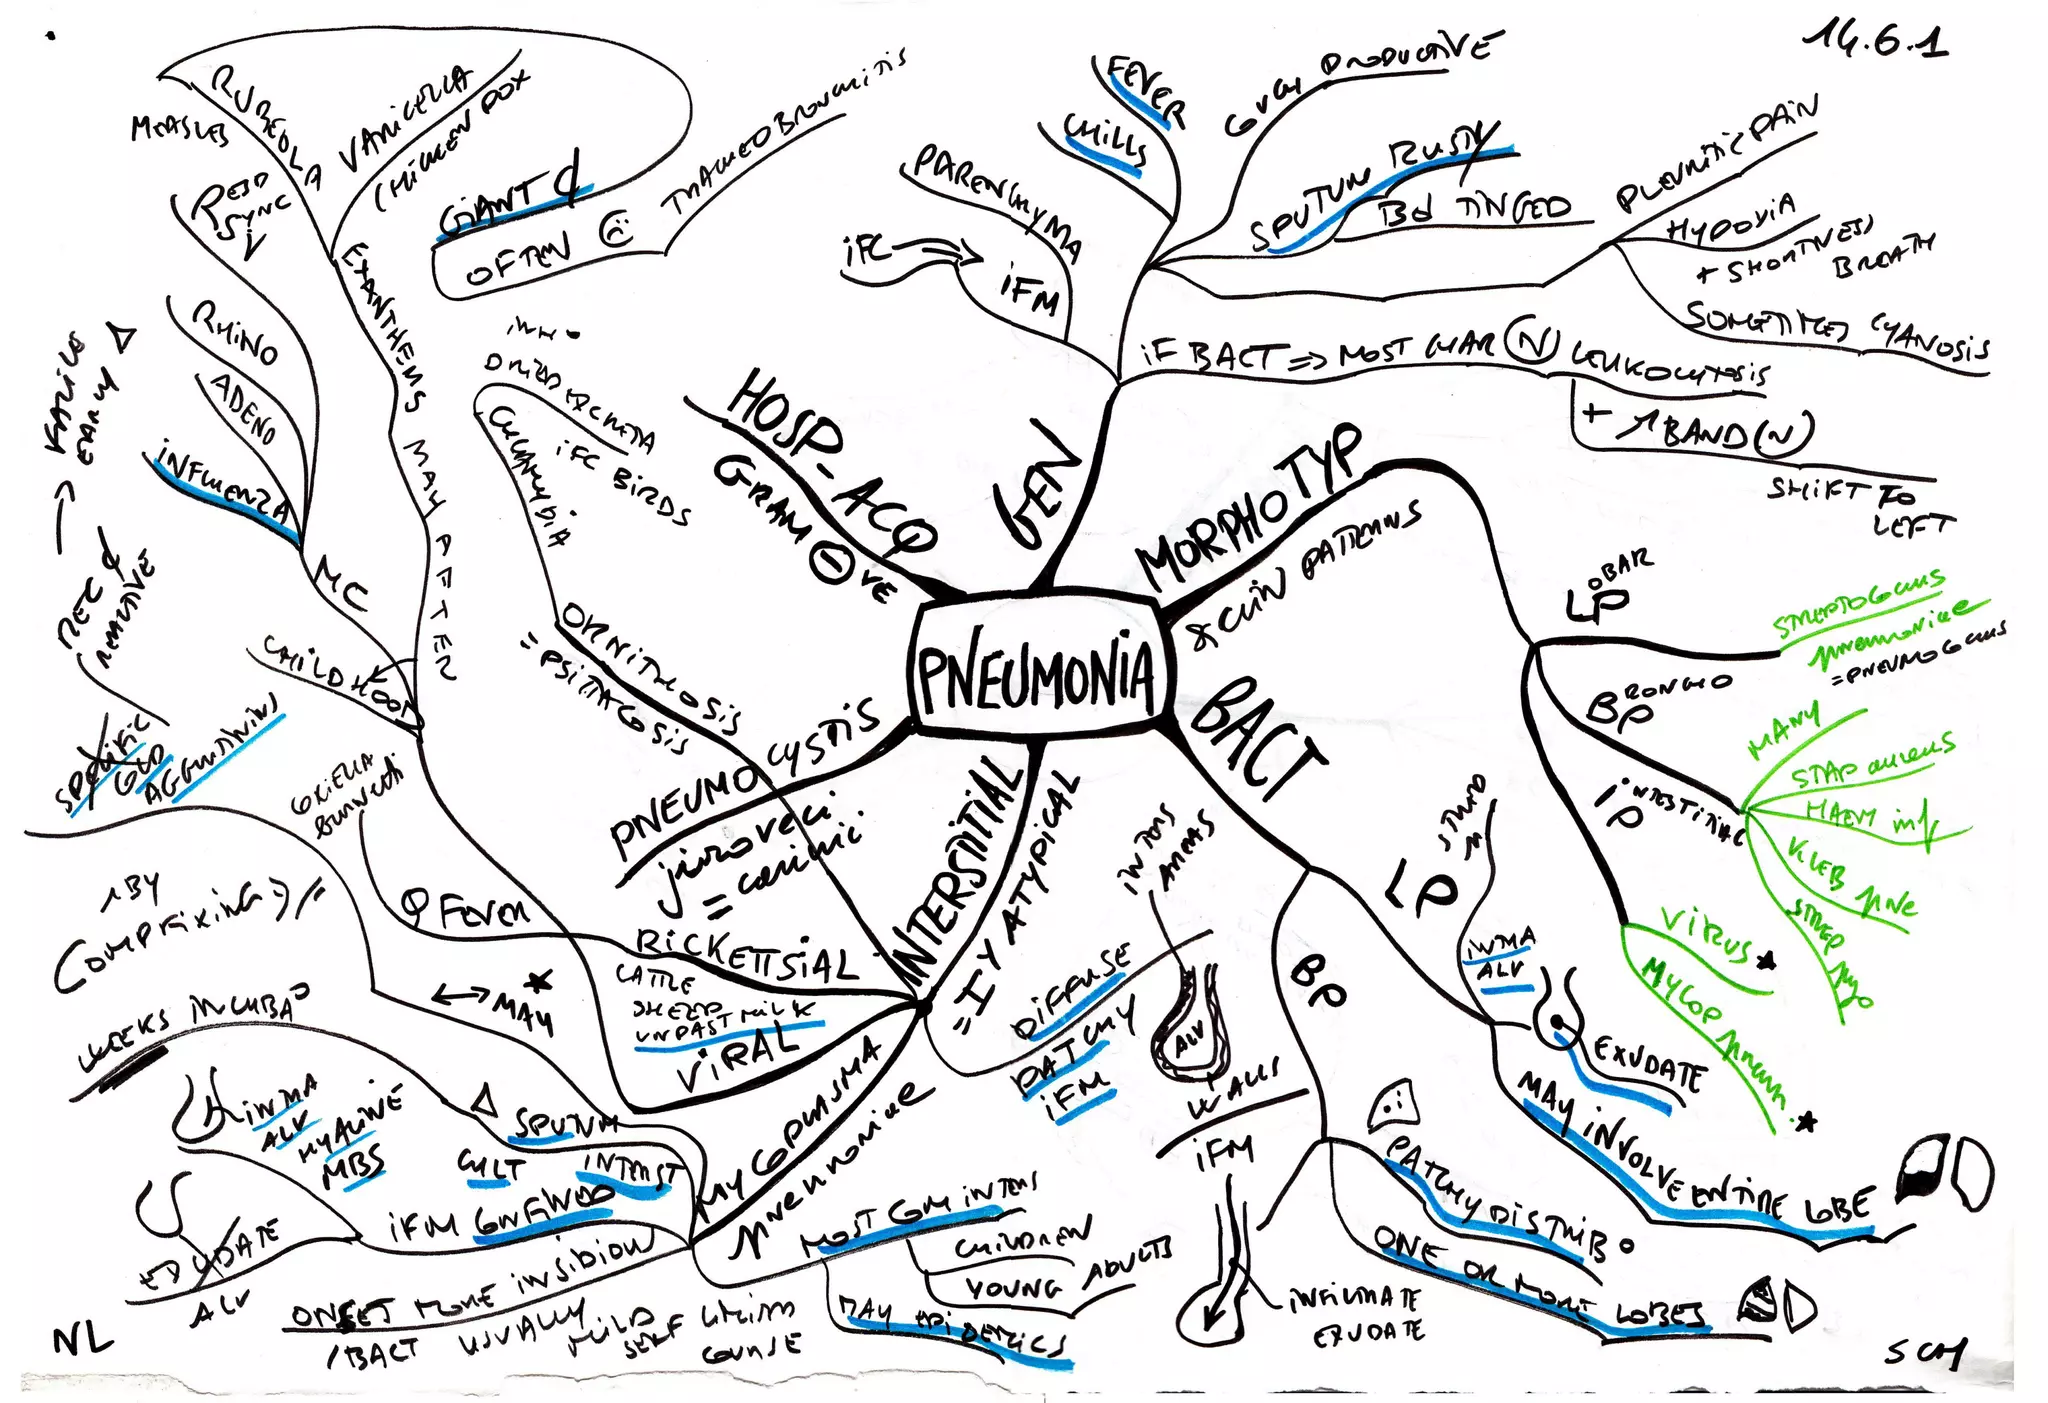 14.6.1
PNEUMONIA
GEN
iFC
iFM
PARENCHYMA
CHILLS
FEVER
COUGH PRODUCTIVE
SPUTUM RUSTY
Bd TINGED
PLEURITIC PAIN
HYPOXIA
+ SHORTNESS
BREATH
SOMETIMES CYANOSIS
iF BACT ⇒ MOST CHAR (N) LEUKOCYTOSIS
+ ↑ BAND (N)
SHIFT TO
LEFT
MORPHO TYP
PATTERNS
LOBAR
LP
STREPTOCOCCUS
pneumoniae
= PNEUMOCOCCUS
BRONCHO
BP
MANY
STAP aureus
HAEM inf
KLEB pne
STREP pyo
iNTERSTITIAL
iP
VIRUS ★
MYCOP pneum. ★
BACT
LP
iNTRA
ALV
EXUDATE
MAY iNVOLVE ENTIRE LOBE
BP
PATCHY DISTRIB°
ONE OR MORE LOBES
iNFILTRATE
EXUDATE
INTERSTITIAL
= 1Y ATYPICAL
DIFFUSE
PATCHY
iFM
AREAS
ALV
WALLS
iFM
MYCOPLASMA
pneumoniae
MOST COM iNTENS
CHILDREN
YOUNG ADULTS
MAY EPIDEMICS
ONSET MORE iNSIDIOUS
/ BACT USUALLY MILD
SELF LIMITED
COURSE
iFM CONFINED
INTERST
iNTRA
ALV
HYALINE
MBS
EXUDATE
ALV
SPUTUM
CULT
WEEKS iNCUBA°
↔ MAY ★
SPECIFIC
COLD
AGGLUTININS
REACTIVE
↑ BY
COMP FIXING
VIRAL
CHILDHOOD
MC
INFLUENZA
ADENO
RHINO
RESP
SYNC
V
EXANTHEMS MAY AFTER
RUBEOLA
MEASLES
VARICELLA
CHICKEN POX
GIANT ¢
OFTEN
TRACHEOBRONCHITIS
RICKETTSIAL
Q FEVER
COXIELLA
burnetti
CATTLE
SHEEP
UNPAST MILK
ORNITHOSIS
= PSITTACOSIS
CHLAMYDIA
DRIED EXCRETA
iFC BIRDS
PNEUMOCYSTIS
jiroveci
= carinii
HOSP-ACQ
GRAM ⊖ VE
NL